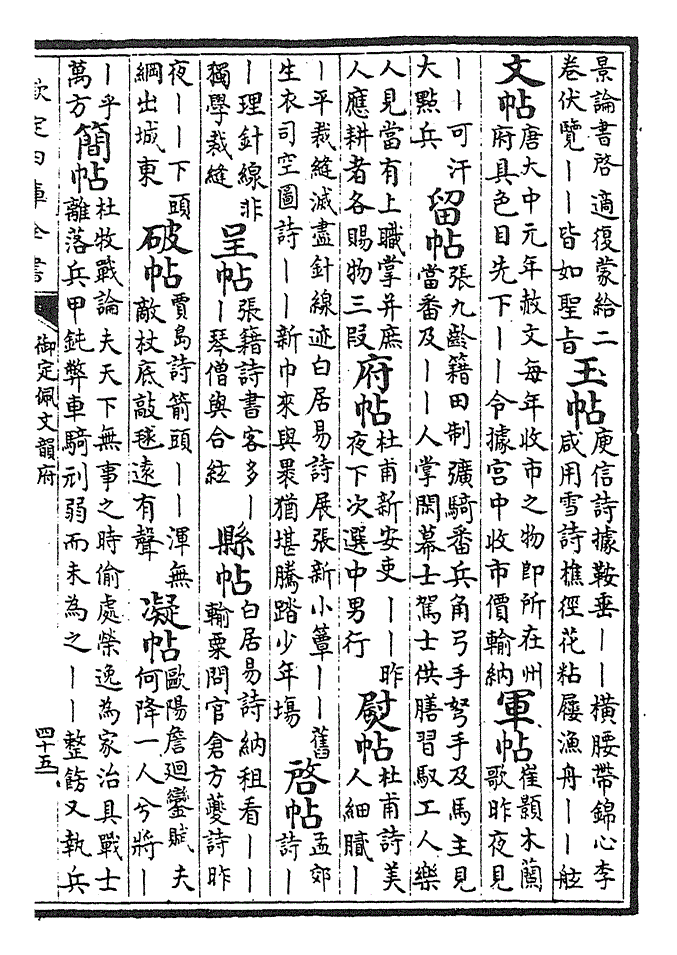 景論書啓適復蒙給二
卷伏覽丨丨皆如聖旨
玉帖
庾信詩據鞍垂丨丨橫腰帶錦心李
咸用雪詩樵徑花粘屨漁舟丨丨舷
文帖
唐大中元年赦文每年收市之物即所在州
府具色目先下丨丨令據宮中收市價輸納
軍帖
崔顥木蘭
歌昨夜見
丨丨可汗
大點兵
留帖
張九齡籍田制彍騎番兵角弓手弩手及馬主見
當番及丨丨人掌閑幕士駕士供膳習馭工人樂
人見當有上職掌并庶
人應耕者各賜物三段
府帖
杜甫新安吏丨丨昨
夜下次選中男行
熨帖
杜甫詩美
人細膩丨
丨平裁縫滅盡針線迹白居易詩展張新小簟丨丨舊
生衣司空圖詩丨丨新巾來與裛猶堪騰踏少年塲
啓帖
孟郊
詩丨
丨理針線非
獨學裁縫
呈帖
張籍詩書客多丨
丨琴僧與合絃
縣帖
白居易詩納租看丨丨
輸粟問官倉方夔詩昨
夜丨丨下頭
綱出城東
破帖
賈島詩箭頭丨丨渾無
敵杖底敲毬遠有聲
凝帖
歐陽詹迴鑾賦夫
何降一人兮將丨
丨乎
萬方
簡帖
杜牧戰論夫天下無事之時偷處榮逸為家治具戰士
離落兵甲鈍弊車騎刓弱而未為之丨丨整飭又執兵
欽定四庫全書
御定佩文韻府
四十五